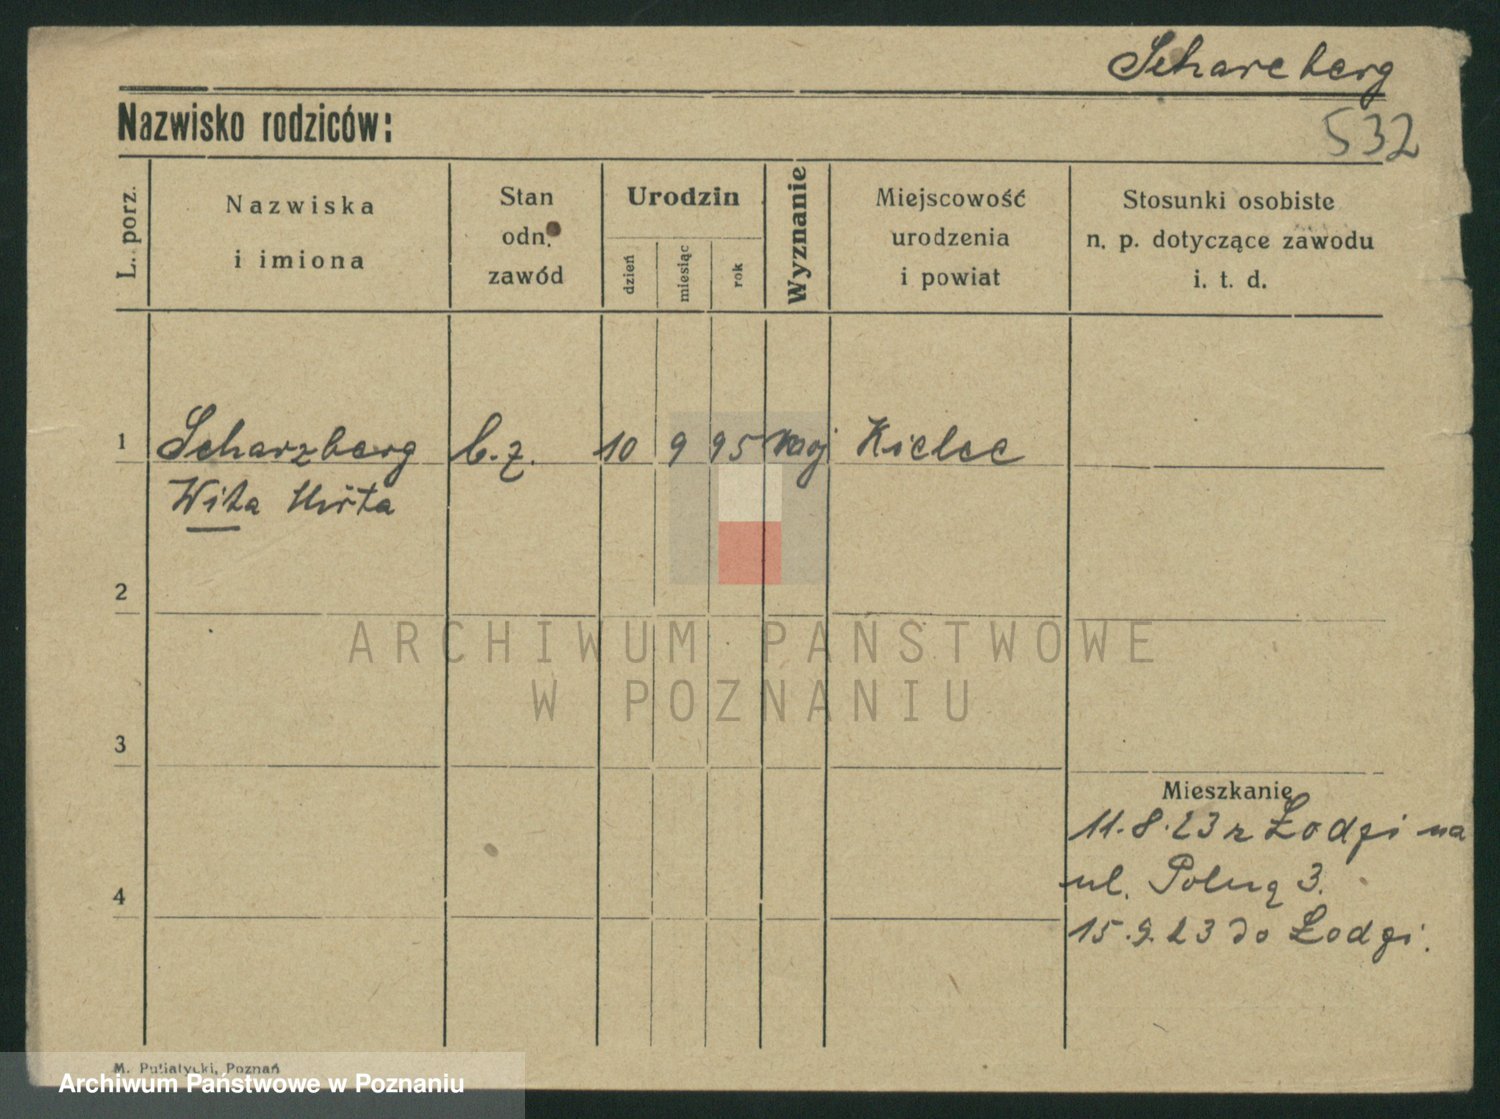 Scharcberg
Nazwisko rodziców:
532
L. porz.
Nazwiska
i imiona
Stan
odn.
zawód
Urodzin
dzień
miesiąc
rok
Wyznanie
Miejscowość
urodzenia
i powiat
Stosunki osobiste
n. p. dotyczące zawodu
i. t. d.
1
Scharzberg
b. z.
10
9
95
moj
Kielce
Wita
2
ARCHIWUM PAŃSTWOWE
W POZNANIU
3
Mieszkanie
11.8.23 z Łodzi na
ul. Polną 3.
4
15.9.23 do Łodzi.
M. Putiatycki, Poznań
Archiwum Państwowe w Poznaniu